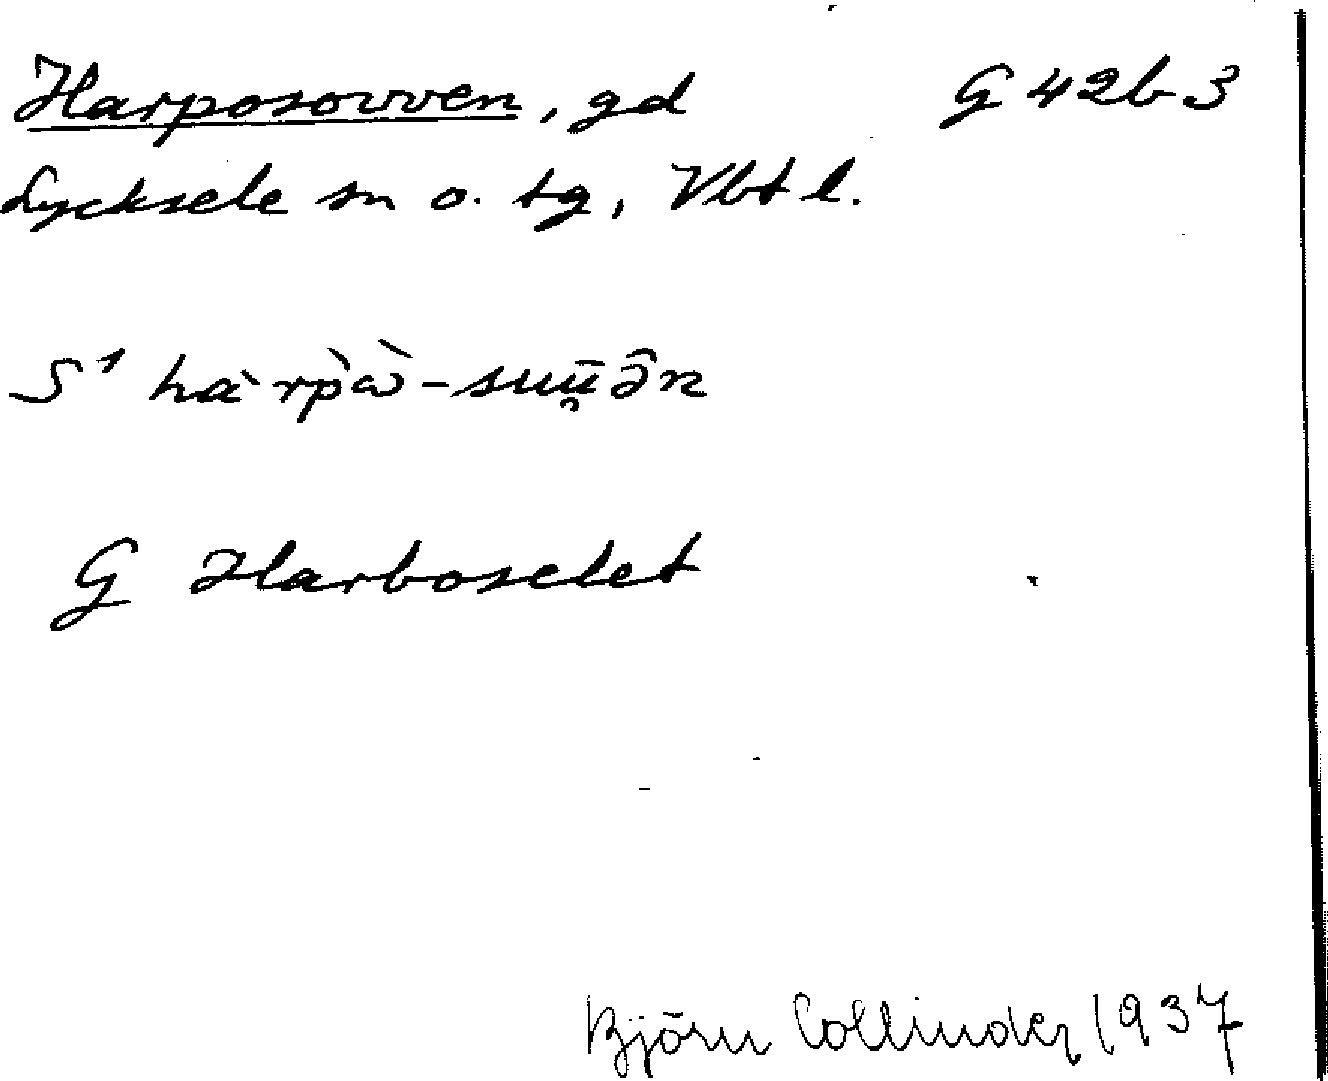 Harposovven, gd G 42b3
Lycksele sn o. tg, Vbtl.
S¹ hàrp̀ɷ̀-suū̯ə̂n
G Harboselet
Björn Collinder 1937